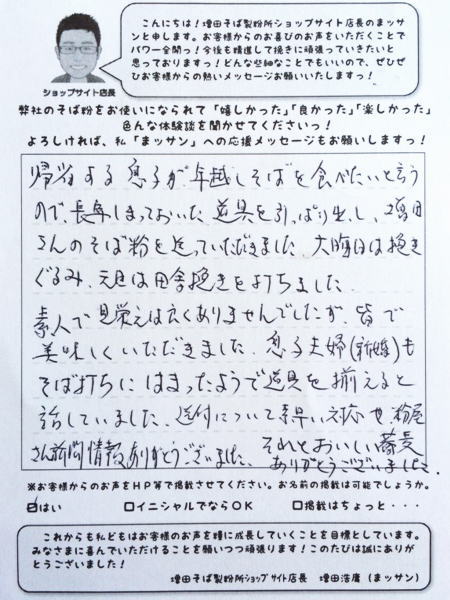 こんにちは！増田そば製粉所ショップサイト店長のまッサ
ンと申します。お客様からのお喜びのお声をいただくことで
パワー全開っ！今後も精進して挽きに頑張っていきたいと
思っておりますっ！どんな些細なことでもいいので、ぜひぜ
ひお客様からの熱いメッセージお願いいたしますっ！
ショップサイト店長
弊社のそば粉をお使いになられて「嬉しかった」「良かった」「楽しかった」
色んな体験談を聞かせてくださいっ！
よろしければ、私「まッサン」への応援メッセージもお願いしますっ！
帰省する息子が、年越しそばを食べたいと言う
ので、長年しまっておいた道具を引っぱり出し、増田
さんのそば粉を送っていただきました。大晦日は挽き
ぐるみ、元旦は田舎挽きを打ちました。
素人で見栄えは良くありませんでしたが、皆で
美味しくいただきました。息子夫婦(新婚)も
そば打ちにはまったようで道具を揃えると
話していました。送付について早い対応や、粉屋
さん新聞情報ありがとうございました。それとおいしい蕎麦
ありがとうございました。
※お客様からのお声をHP等で掲載させてください。お名前の掲載は可能でしょうか。
☑はい □イニシャルでならOK □掲載はちょっと・・・
これからも私どもはお客様のお声を糧に成長していくことを目標としています。
みなさまに喜んでいただけることを願いつつ頑張ります！このたびは誠にありが
とうございました！
増田そば製粉所ショップサイト店長 増田浩庸（まッサン）